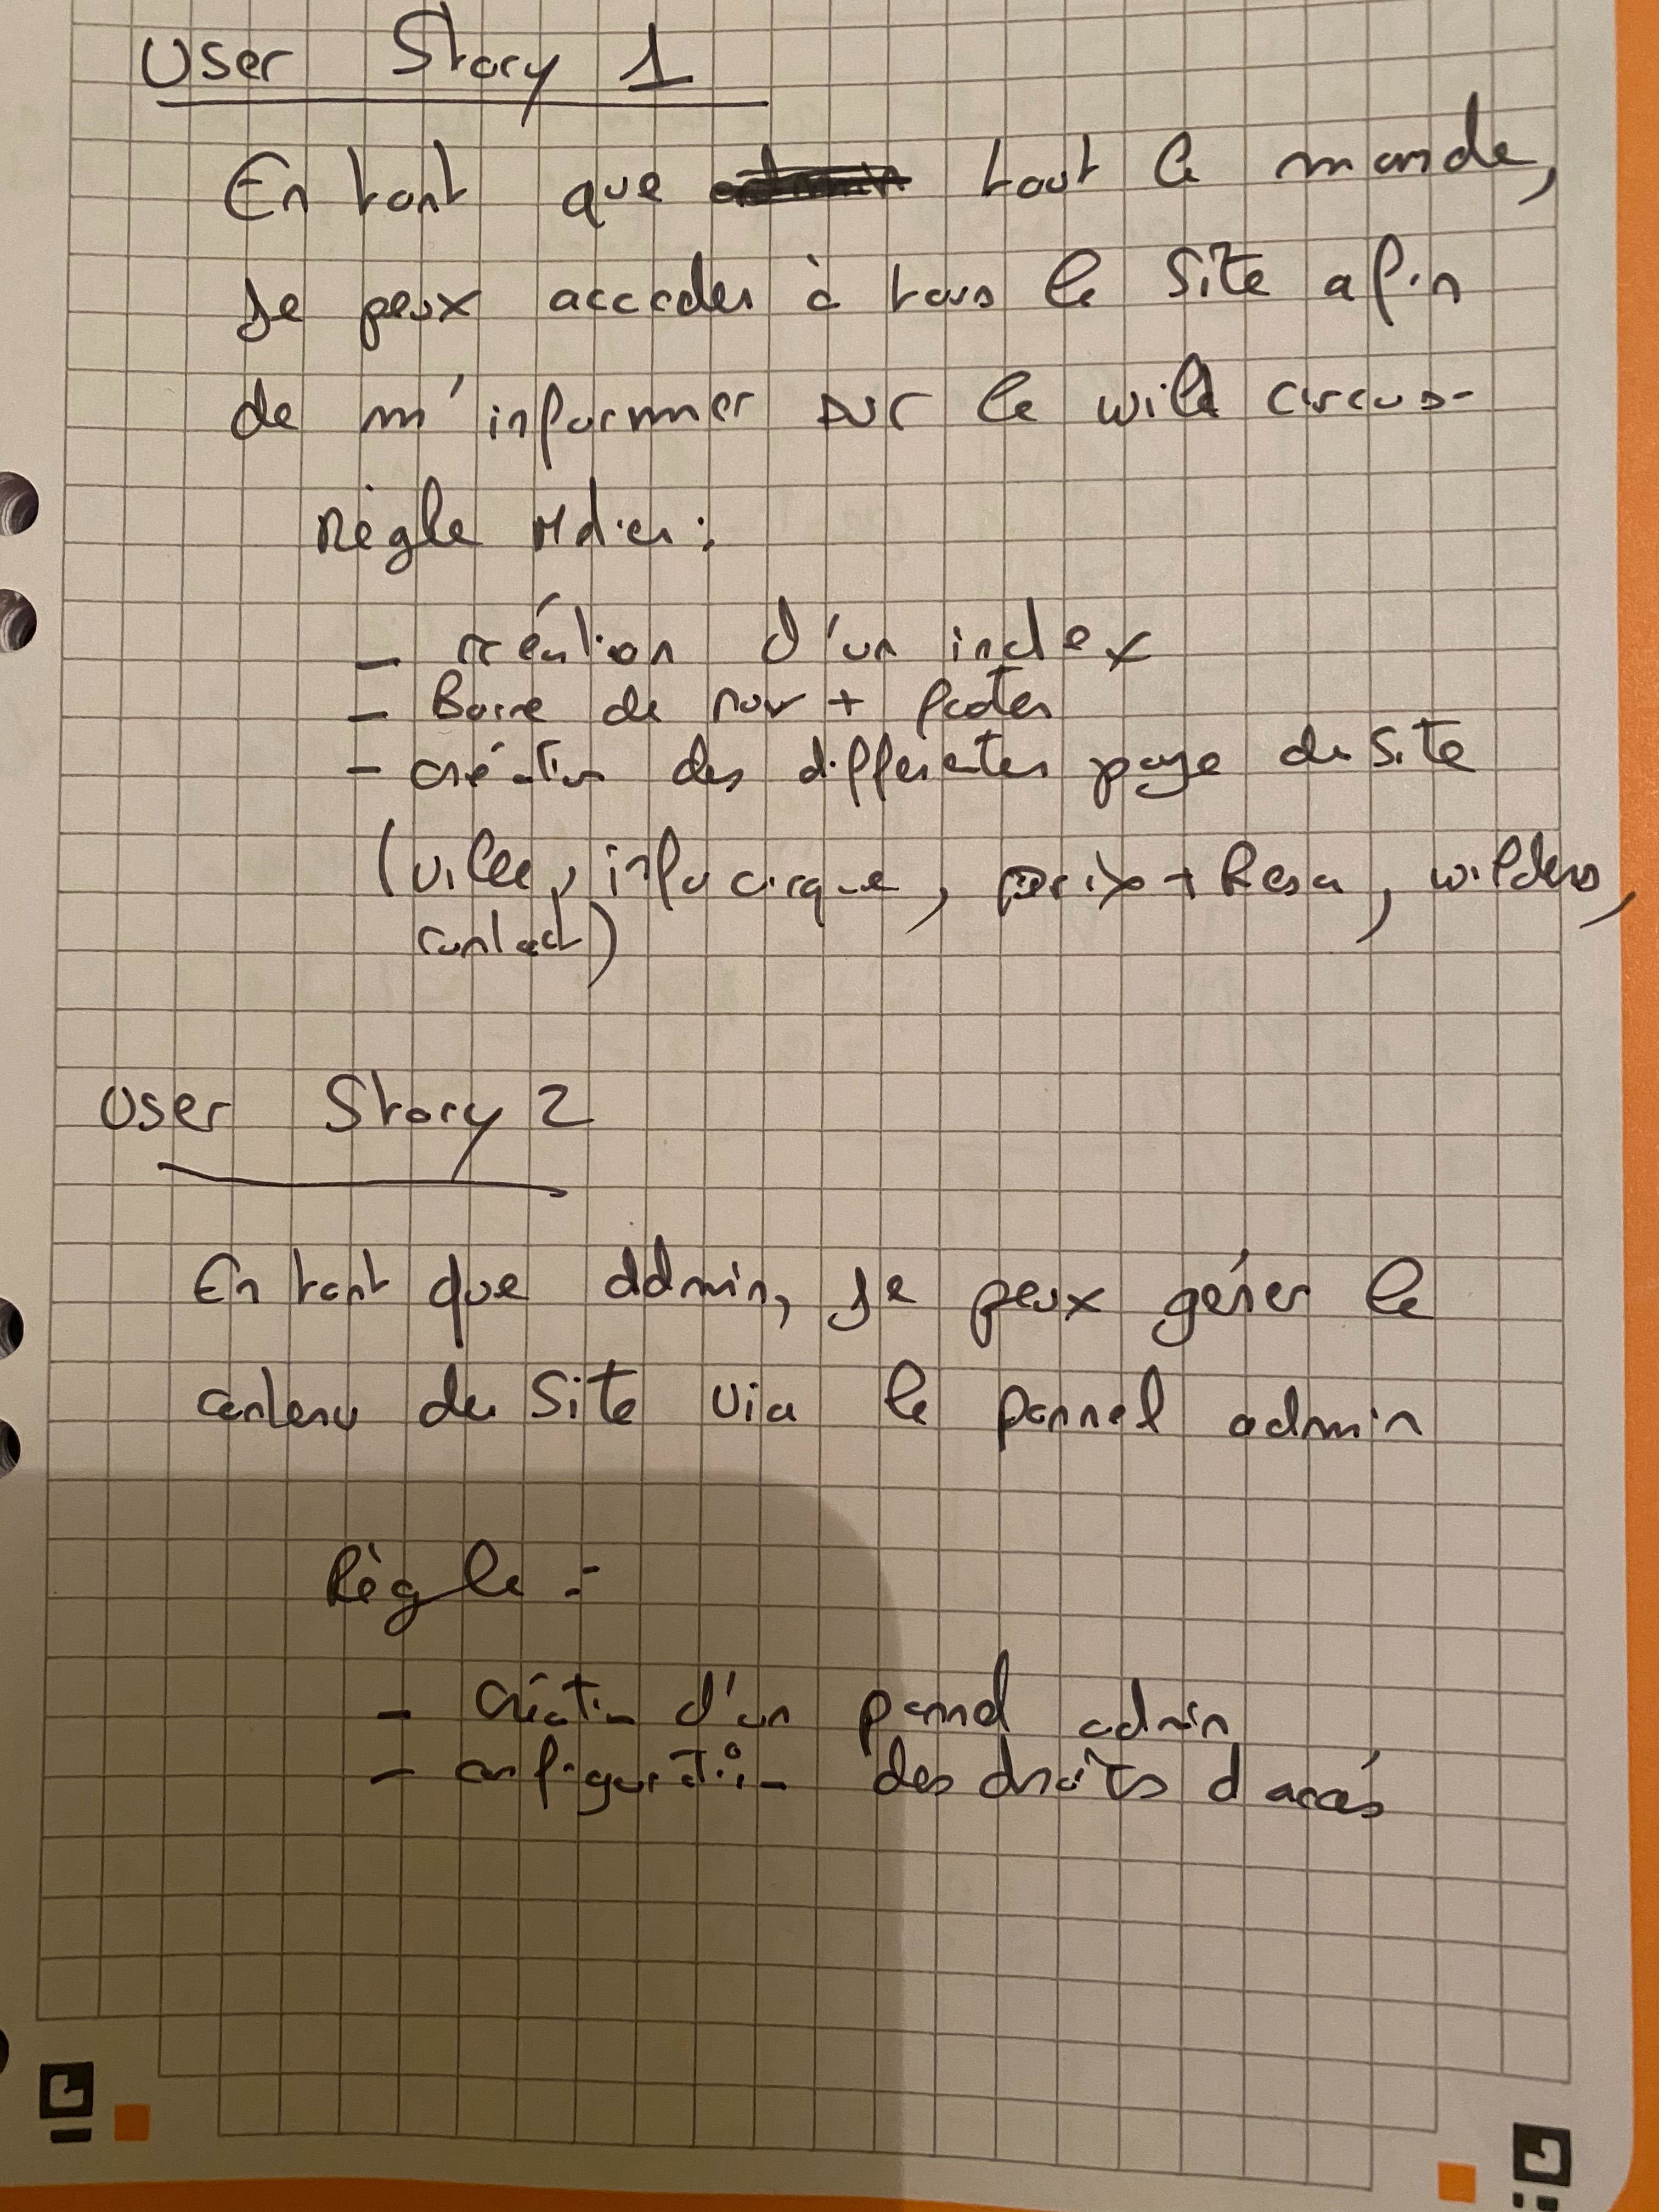 User Story 1
En tant que tout le monde,
Je peux acceder à tous le site afin
de m'informer sur le wild circus.
Règle Métier :
- création d'un index
- Barre de nav + footer
- création des différentes page du site
(villes, info cirque, prix + Resa, wilders,
contact)
User Story 2
En tant que admin, Je peux gérer le
contenu du site via le pannel admin
Règle :
- création d'un pannel admin
- configuration des droits d'accés